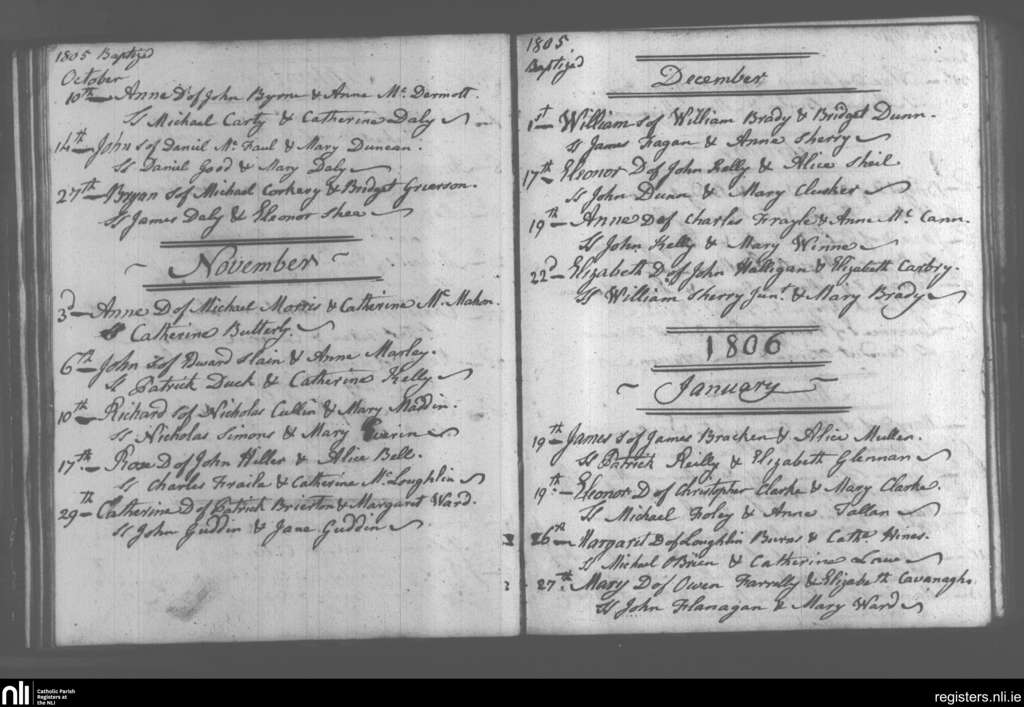 1805 Baptized
October
10th Anne D of John Byrne & Anne Mc Dermott
Ss Michael Carty & Catherine Daly
14th John S of Daniel Mc Faul & Mary Duncan.
Ss Daniel Good & Mary Daly
27th Bryan S of Michael Corkery & Bridget Grierson.
Ss James Daly & Eleonor Shea
November
3d Anne D of Michael Morris & Catherine Mc Mahon.
S Catherine Buttery.
6th John S of Edward Slain & Anne Marley.
Ss Patrick Duck & Catherine Kelly
10th Richard S of Nicholas Cullin & Mary Maddin.
Ss Nicholas Simons & Mary
17th Rose D of John Hiller & Alice Bell.
Ss Charles Fraile & Catherine Mc Loughlin
29th Catherine D of Patrick Brierton & Margaret Ward.
Ss John Guddin & Jane Guddin
1805
Baptized
December
1st William S of William Brady & Bridget Dunn.
Ss James Fagan & Anne Sherry
17th Eleonor D of John Kelly & Alice Sheil
Ss John Dunn & Mary Clusker
19th Anne D of Charles Frayle & Anne Mc Cann.
Ss John Kelly & Mary Winne
22d Elizabeth D of John Halligan & Elizabeth Carbry.
Ss William Sherry Junr. & Mary Brady
1806
January
19th James S of James Bracken & Alice Mullen.
Ss Patrick Reilly & Elizabeth Glennan
19th Eleonor D of Christopher Clarke & Mary Clarke.
Ss Michael Foley & Anne Tallan
26th Margaret D of Loughlin Burns & Cathe Hines.
Ss Michael OBrien & Catherine Lowe
27th Mary D of Owen Farrelly & Elizabeth Cavanagh.
Ss John Flanagan & Mary Ward
nli
Catholic Parish
Registers at
the NLI
registers.nli.ie